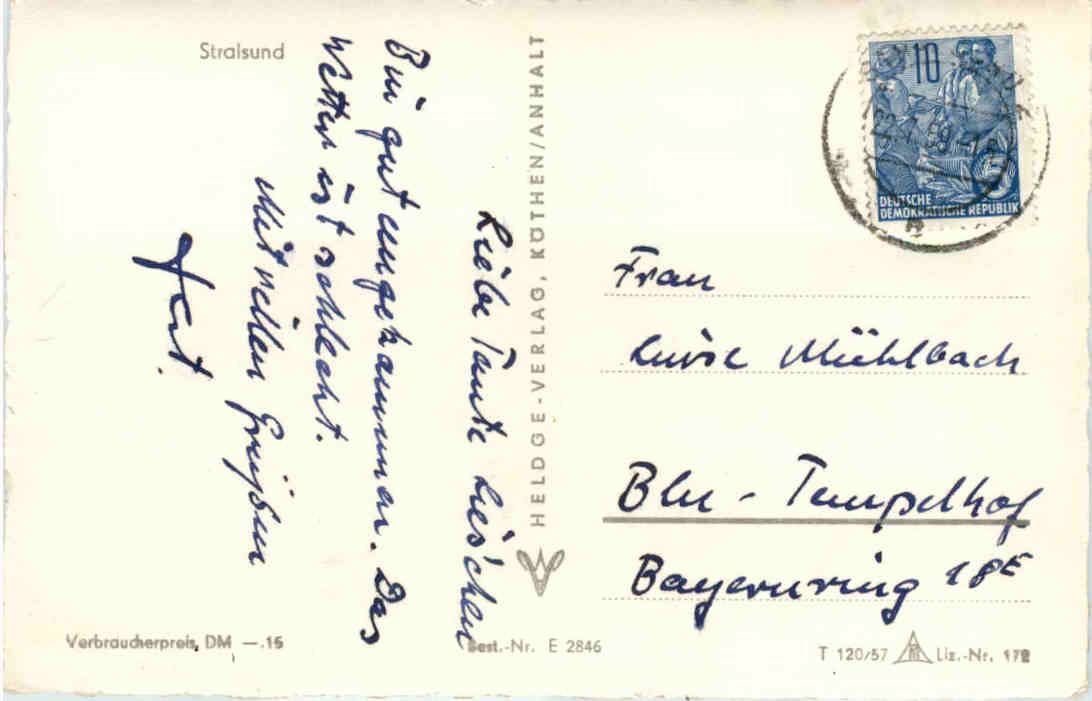 Stralsund
Liebe Tante Lieschen
Bin gut angekommen. Das
Wetter ist schlecht.
Mit vielen Grüßen
HELDGE-VERLAG, KÖTHEN/ANHALT
10
22.7.59
DEUTSCHE
DEMOKRATISCHE REPUBLIK
Frau
Luise Mühlbach
Bln - Tempelhof
Bayernring 18E
Verbraucherpreis, DM —.15
Best.-Nr. E 2846
T 120/57 Liz.-Nr.